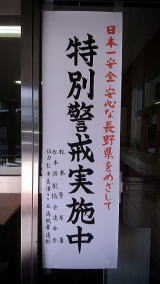 日本一安全・安心な長野県をめざして
特別警戒実施中
松本警察署
松本防犯協会連合会